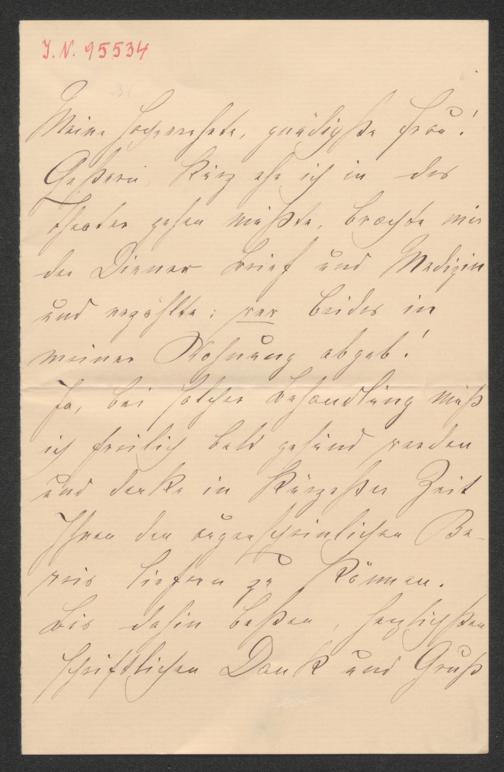 J. N. 95534
Meine hochverehrte, gnädigste Frau!
Gestern kurz ehe ich in das
Theater gehen mußte, brachte mir
der Diener Brief und Medizin
und erzählte: wer beides in
meiner Wohnung abgab!
Ja, bei solcher Behandlung muß
ich freilich bald gesund werden
und denke in kürzester Zeit
Ihnen den augenscheinlichen Be-
weis liefern zu können.
Bis dahin besten, herzlichsten
schriftlichen Dank und Gruß